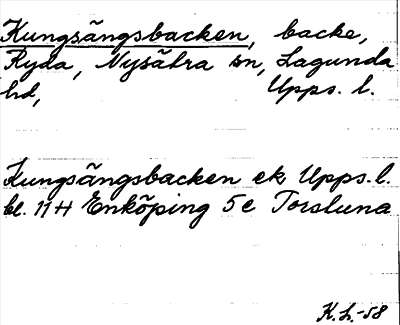 Kungsängsbacken, backe,
Ryda, Nysätra sn, Lagunda
hd, Upps. l.
Kungsängsbacken ek Upps. l.
bl. 11H Enköping 5e Torsluna
K.L.-58